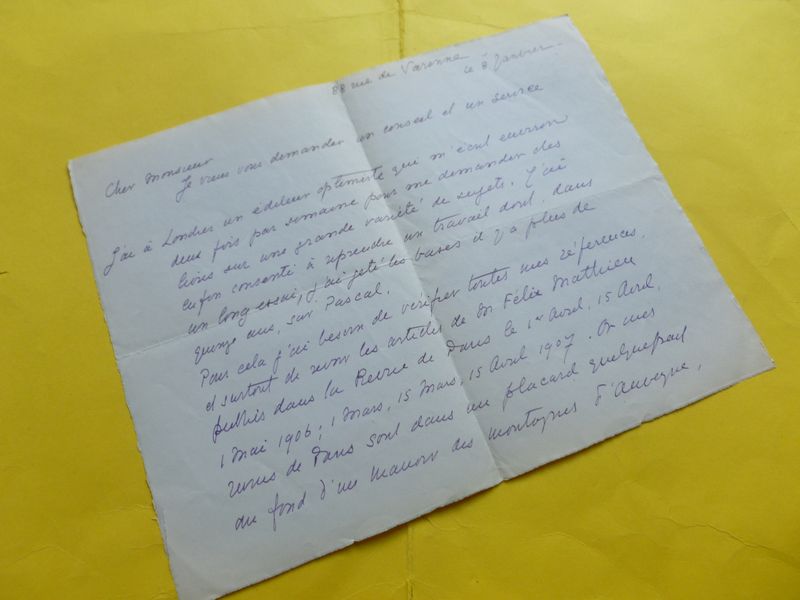 88 rue de Varenne
ce 8 Janvier.
Cher Monsieur
Je veux vous demander un conseil et un service
J'ai à Londres un éditeur optimiste qui m'écrit environ
deux fois par semaine pour me demander des
livres sur une grande variété de sujets. J'ai
enfin consenti à reprendre un travail dont, dans
un long essai, j'ai jeté les bases il y a plus de
quinze ans, sur Pascal.
Pour cela j'ai besoin de vérifier toutes mes références,
et surtout de revoir les articles de M Félix Mathieu
publiés dans la Revue de Paris le 1er Avril, 15 Avril,
1 Mai 1906; 1 Mars, 15 Mars, 15 Avril 1907. Or mes
revues de Paris sont dans un placard quelquepart
au fond d'un manoir des montagnes d'Auvergne,